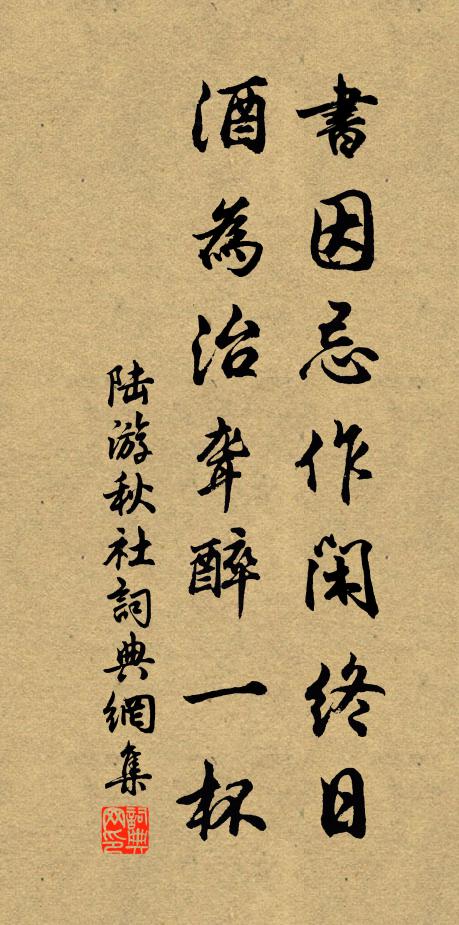 書因忌作閑終日
酒為治聾醉一杯
陆游秋社詞典網集
詞典網印